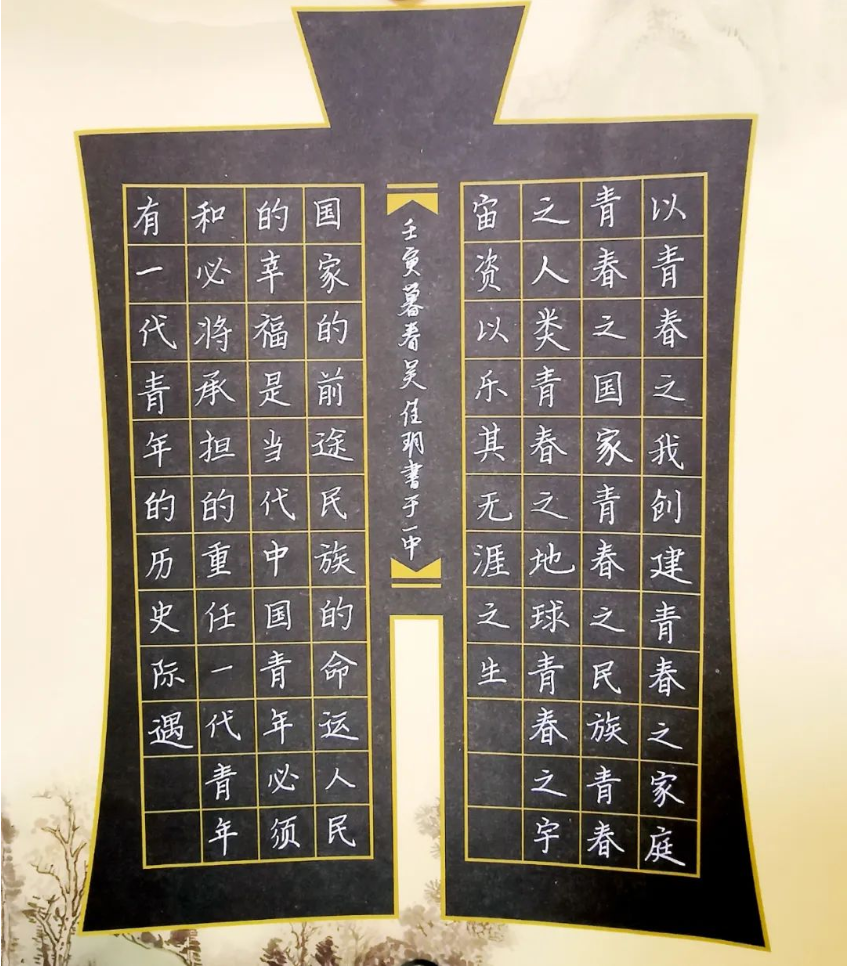 以青春之我创建青春之家庭
青春之国家青春之民族青春
之人类青春之地球青春之宇
宙资以乐其无涯之生
壬寅暮春吴佳玥書于一中
国家的前途民族的命运人民
的幸福是当代中国青年必须
和必将承担的重任一代青年
有一代青年的历史际遇